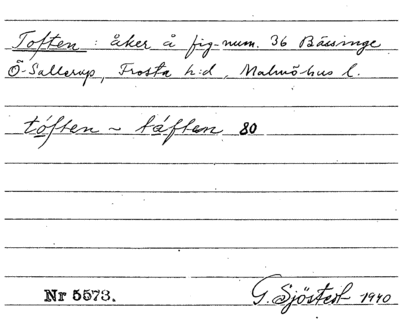 Toften : åker å fig-num. 36 Bässinge
Ö-Sallerup, Frosta h:d, Malmöhus l.
tóften ~ táften 80
Nr 5573.
G. Sjöstedt 1940